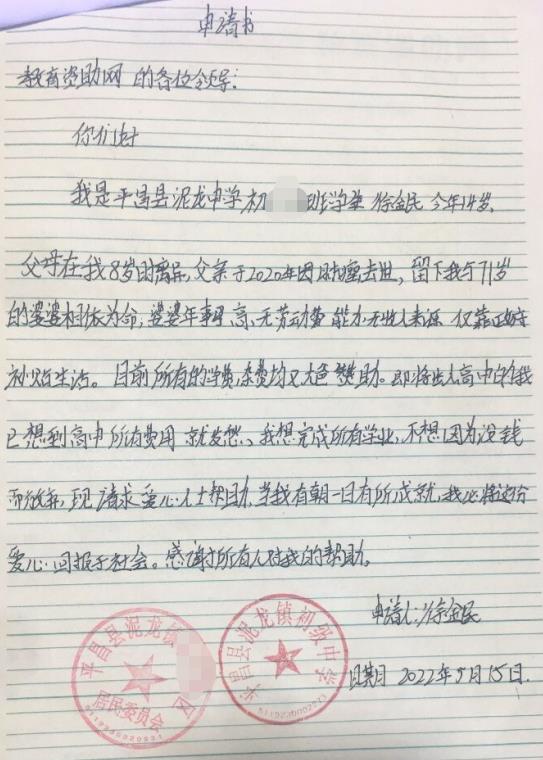 申请书
教育资助网的各位领导:
你们好
我是平昌县泥龙中学初 班学生 徐金民 今年14岁、
父母在我8岁时离异,父亲于2020年因 去世,留下我与71岁
的婆婆相依为命,婆婆年事 高、无劳动 能力无收入来源 仅靠政府
补贴生活。目前所有的学费,杂费均 赞助。即将步入高中的我
已想到高中所有费用 就发愁、我想完成所有学业,不想因为没钱
而放弃,现请求爱心人士帮助,当我有朝一日有所成就,我必将这份
爱心回报于社会。感谢所有人对我的帮助。
申请人:徐金民
日期 2022年9月15日.
平昌县泥龙镇 社区
居民委员会
5119230020931
平昌县泥龙镇初级中学